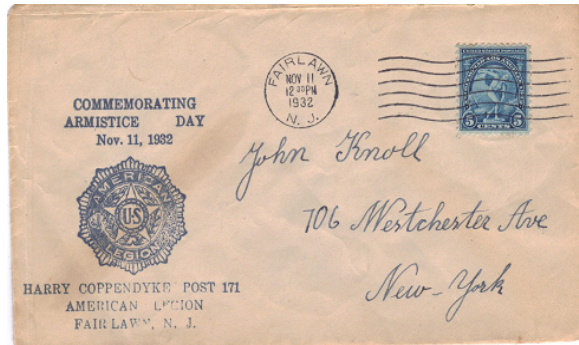 COMMEMORATING
ARMISTICE DAY
Nov. 11, 1932
AMERICAN
U·S
LEGION
HARRY COPPENDYKE POST 171
AMERICAN LEGION
FAIR LAWN, N. J.
FAIRLAWN
NOV 11
12 30PM
1932
N. J.
UNITED STATES POSTAGE
5 CENTS 5
John Knoll
706 Westchester Ave
New-York